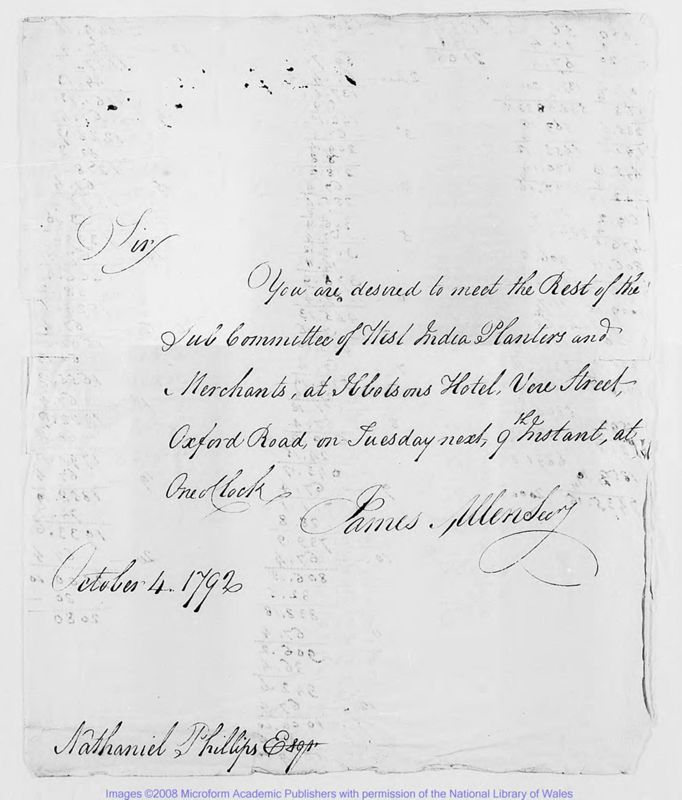 Sir
You are desired to meet the Rest of the
Sub Committee of West India Planters and
Merchants, at Ibbotsons Hotel, Vere Street,
Oxford Road, on Tuesday next, 9th Instant, at
One oClock
James Allen Secy
October 4. 1792
Nathaniel Phillips Esqr
Images ©2008 Microform Academic Publishers with permission of the National Library of Wales